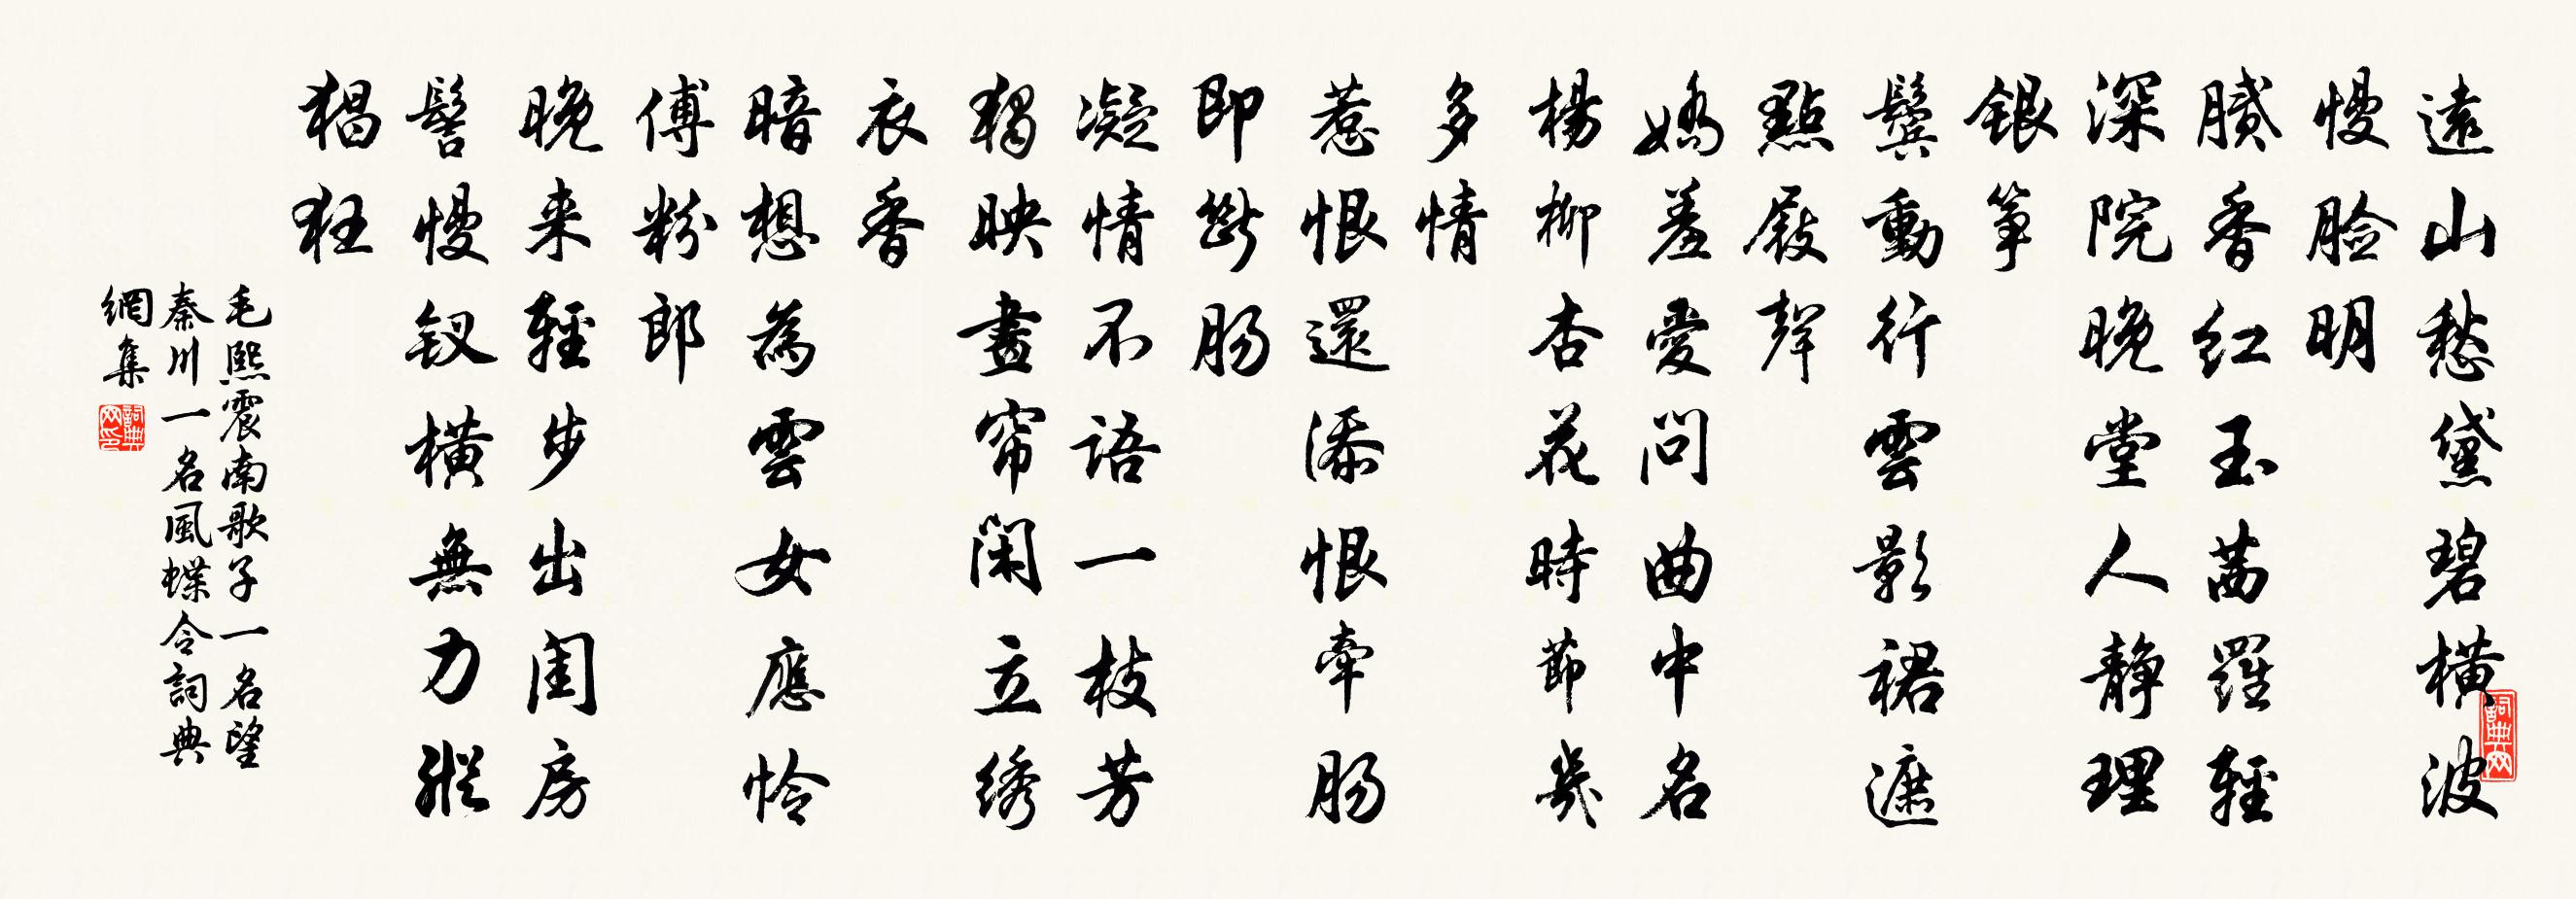 遠山愁黛碧橫波
慢脸明
膩香红玉茜羅輕
深院晚堂人靜理
銀筝
鬢動行雲影裙遮
點屐聲
嬌羞愛問曲中名
楊柳杏花時節幾
多情
惹恨還添恨牽腸
即斷腸
凝情不語一枝芳
獨映畫帘閑立绣
衣香
暗想為雲女應怜
傅粉郎
晚来輕步出閨房
髻慢钗橫無力縱
猖狂
毛熙震南歌子一名望
秦川一名風蝶令詞典
網集
詞典网印
詞典网